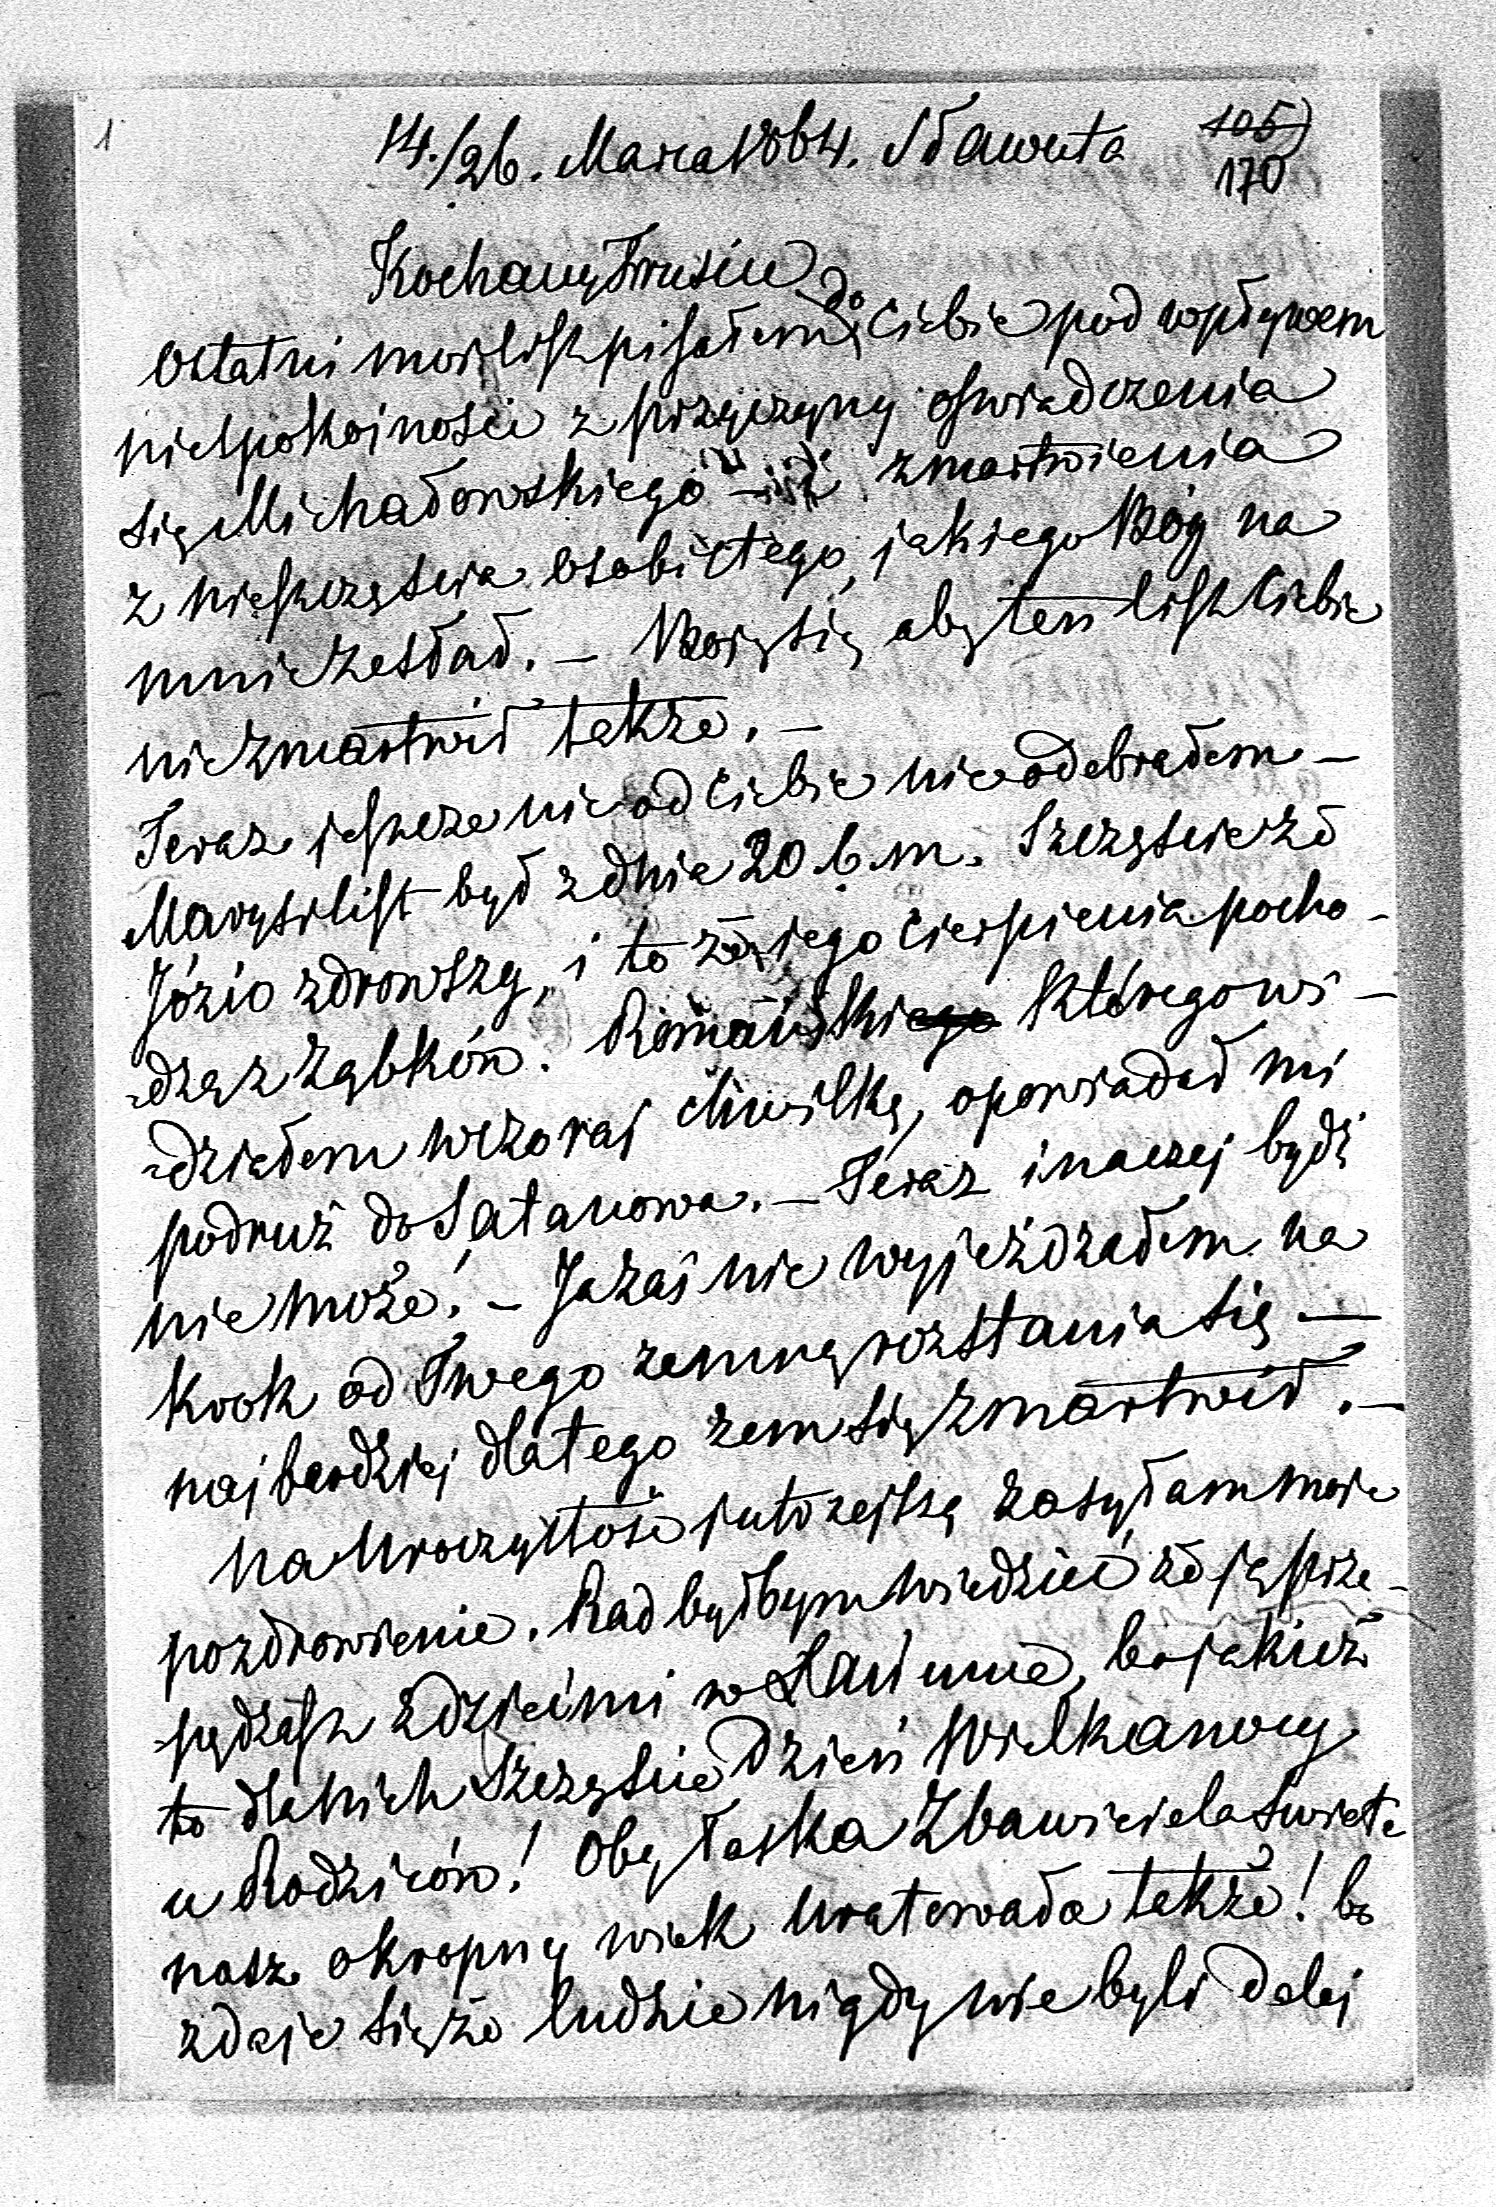 1
14./26. Marca 1864. Sławuta
105)
170
Kochany Frusiu
Ostatni mój list pisałem do Ciebie pod wpływem
niespokojności z przyczyny oświadczenia
się Michałowskiego – i zmartwienia
z nieszczęścia osobistego, jakiego Bóg na
mnie zesłał. – Boję się aby ten list Ciebie
nie zmartwił także. –
Teraz jeszcze nic od Ciebie nie odebrałem –
Marysi list był z dnia 20 b. m. Szczęście że
Józio zdrowszy, i to że jego cierpienia pocho-
-dzą z ząbków. Romański którego wi-
-działem wczoraj chwilkę, opowiadał mi
podruż do Satanowa. – Teraz inaczej bydź
nie może! – Ja zaś nie wyjeżdzałem na
krok od Twego zemną rozstania się –
najbardziej dlatego żem się zmartwił. –
Na Uroczystość jutrzejszą zasyłam moje
pozdrowienie. Rad byłbym wiedzieć że ją prze-
-pędzasz z dziećmi w bo jakież
to dla nich szczęście Dzień Wielkanocy
u Rodziców! Oby łaska Zbawiciela świata
nasz okropny wiek uratowała także! bo
zdaje się że ludzie nigdy nie byli dalej